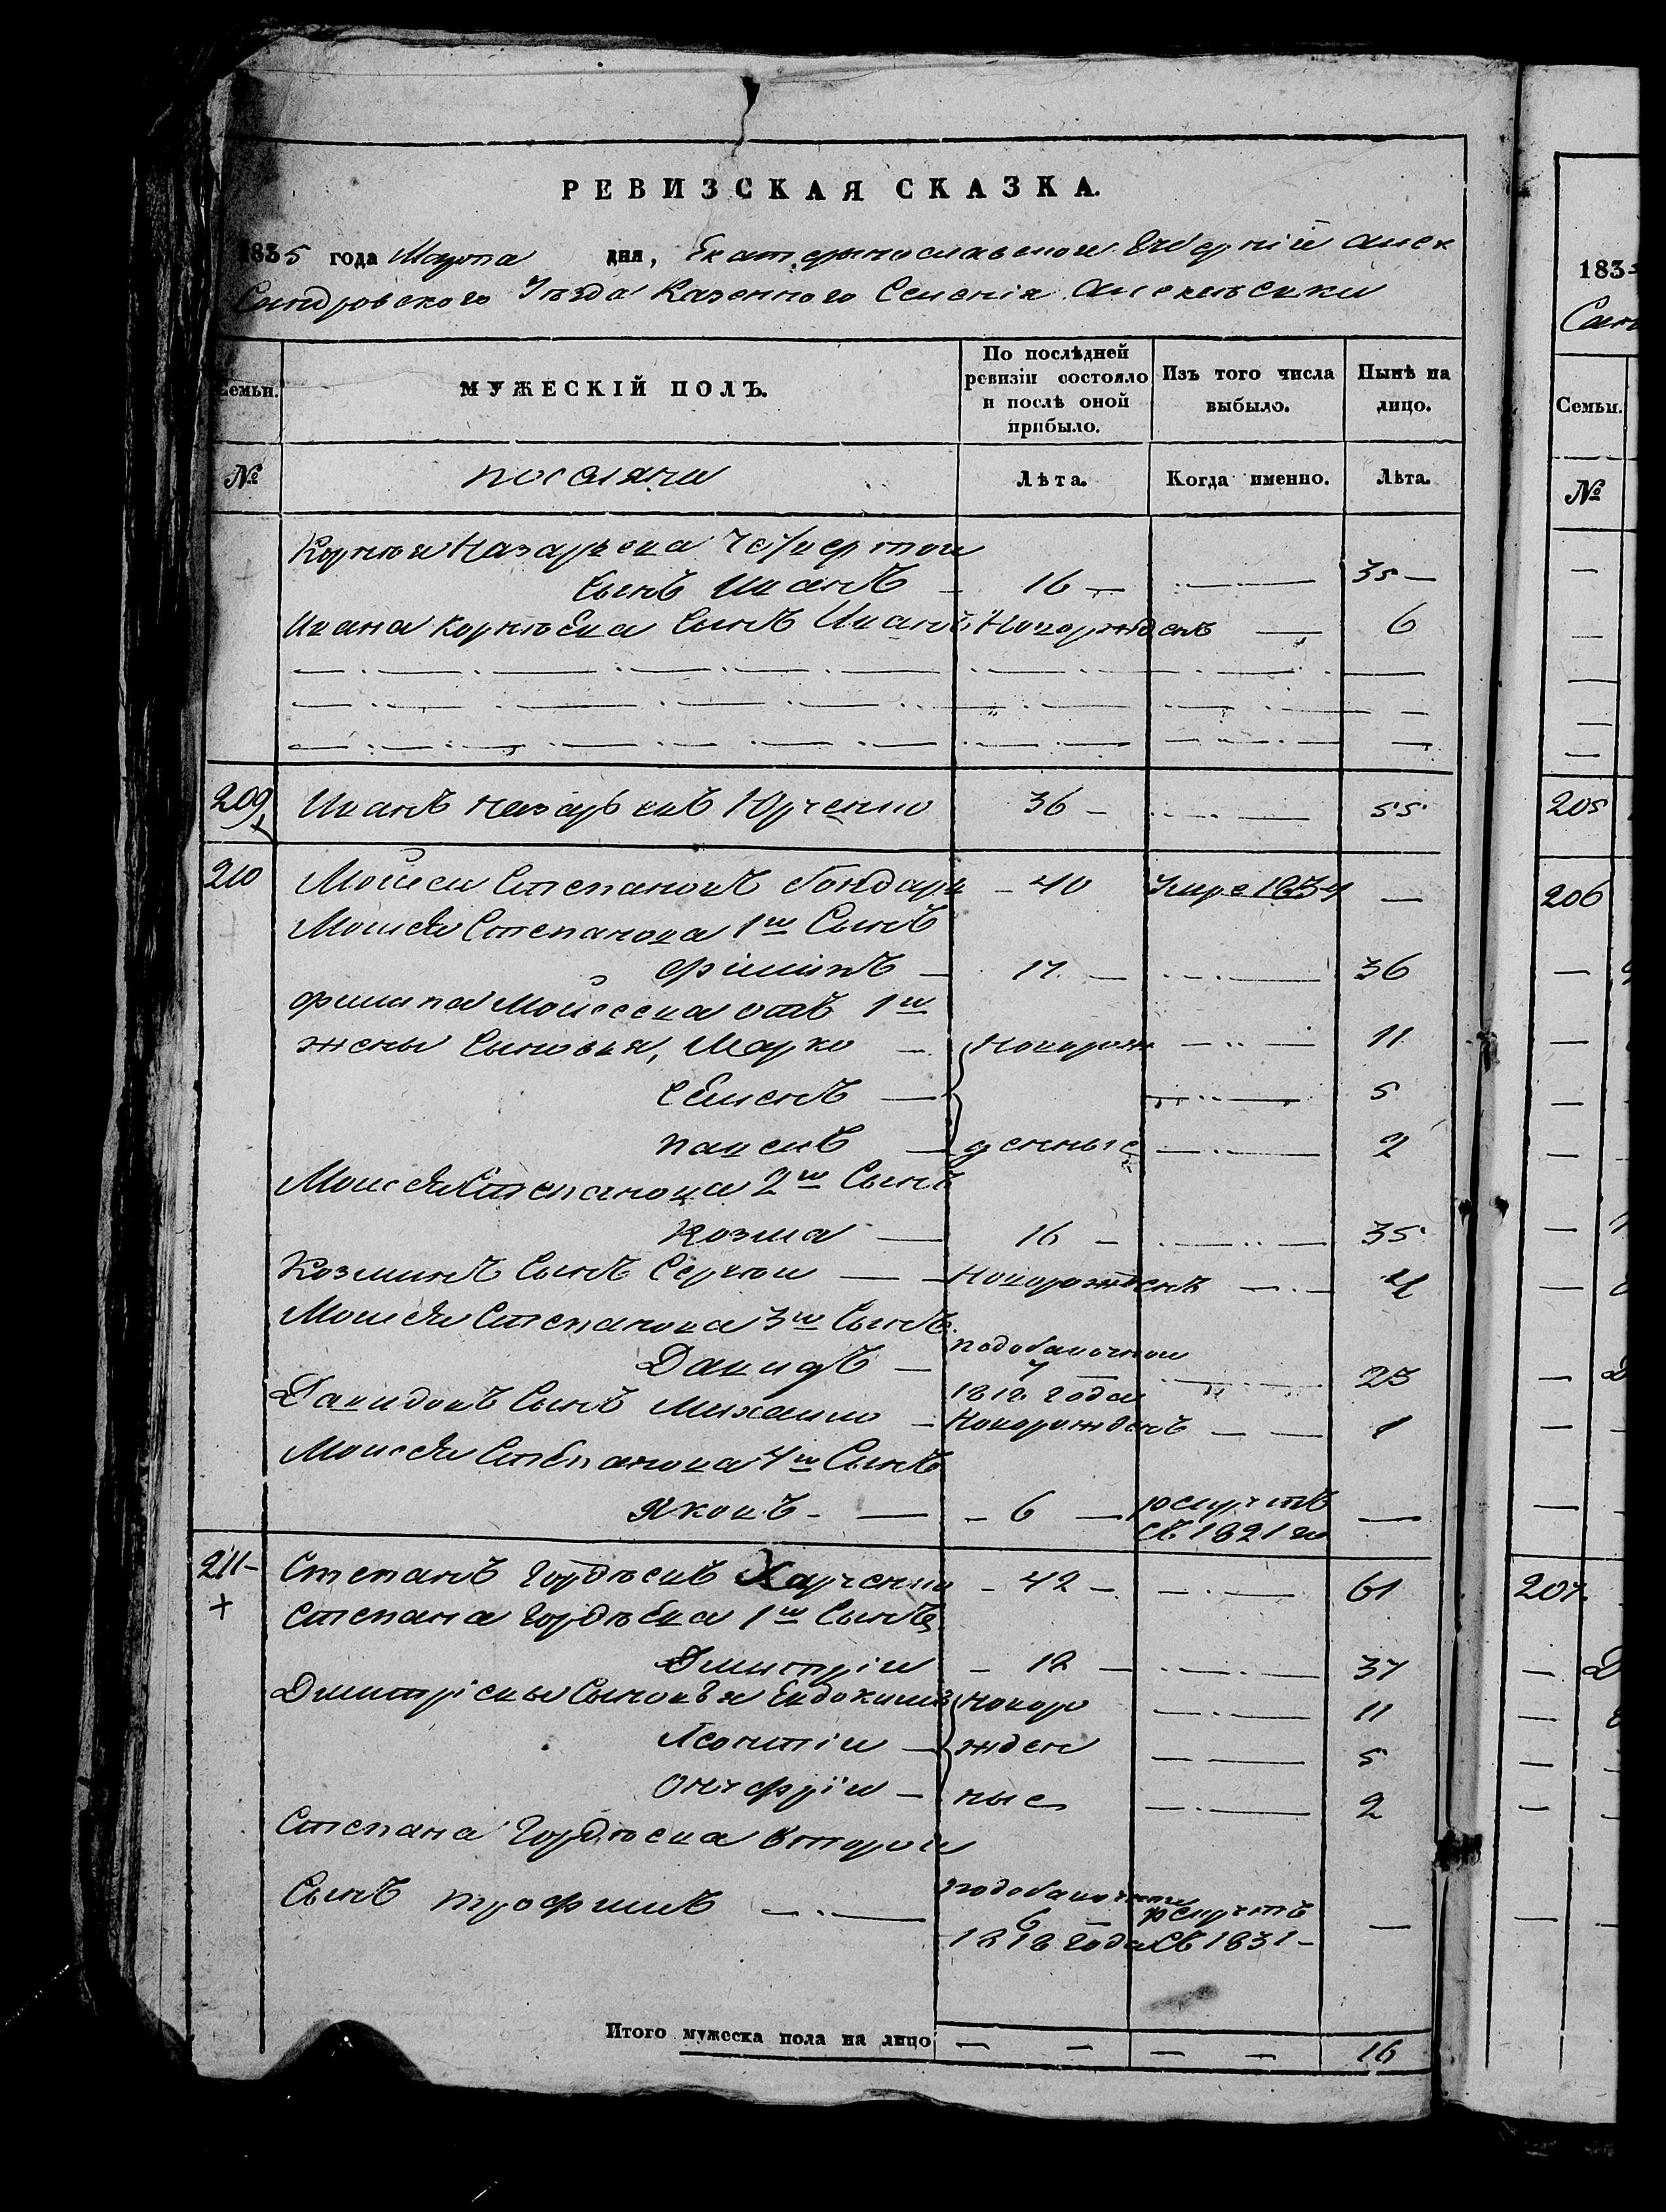 РЕВИЗСКАЯ СКАЗКА.
1835 года Марта дня, Екатеринославской Губерніи Алек
сандровского Уезда Казенного Селенія
Семьи. МУЖЕСКІЙ ПОЛЪ. По послѣдней ревизіи состояло и послѣ оной прибыло. Изъ того числа выбыло. Нынѣ на лицо.
№ поселяне Лѣта. Когда именно. Лѣта.
Корнея Назарьева четвертой
сынъ Иванъ 16 35
Ивана Корнеева сынъ Иванъ новорожденъ 6
209 Иванъ Назарьевъ Юрченко 36 55
210 Моисей Степановъ Бондарь 40 Умре 1834
Моисея Степанова 1й Сынъ
Филипъ 17 36
Филипа Моисеева отъ 1й
жены Сыновья, Марко новорож 11
Семенъ 5
Павелъ денные 2
Моисея Степанова 2й Сынъ
Козма 16 35
Козминъ Сынъ Сергей новорожденъ 4
Моисея Степанова 3й Сынъ
Давидъ подобавочной 7 1818 года 23
Давидовъ Сынъ Михайло новорожденъ 1
Моисея Степанова 4й Сынъ
Яковъ 6 рекрутъ съ 1821 го
211 Степанъ Гордѣевъ Харченко 42 61
Степана Гордѣева 1й Сынъ
Дмитрій 18 37
Дмитріевы Сыновья Евдокимъ новоро 11
Леонтій жден 5
Онуфрій ные 2
Степана Гордѣева второй
Сынъ Трофимъ подобавочной 6 1818 года рекрутъ съ 1831
Итого мужеска пола на лицо 16
183
Семьи.
№
205
206
207